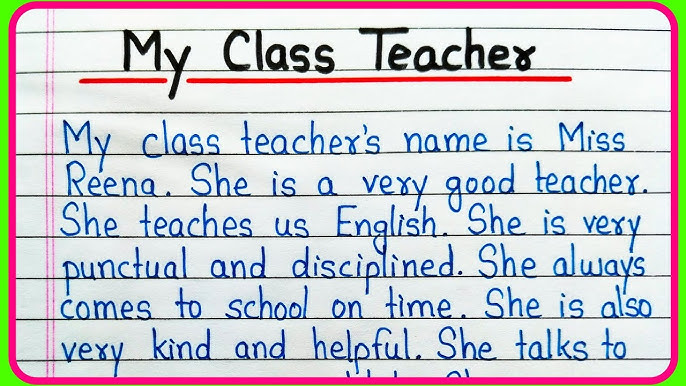 My Class Teacher
My class teacher's name is Miss
Reena. She is a very good teacher.
She teaches us English. She is very
punctual and disciplined. She always
comes to school on time. She is also
very kind and helpful. She talks to